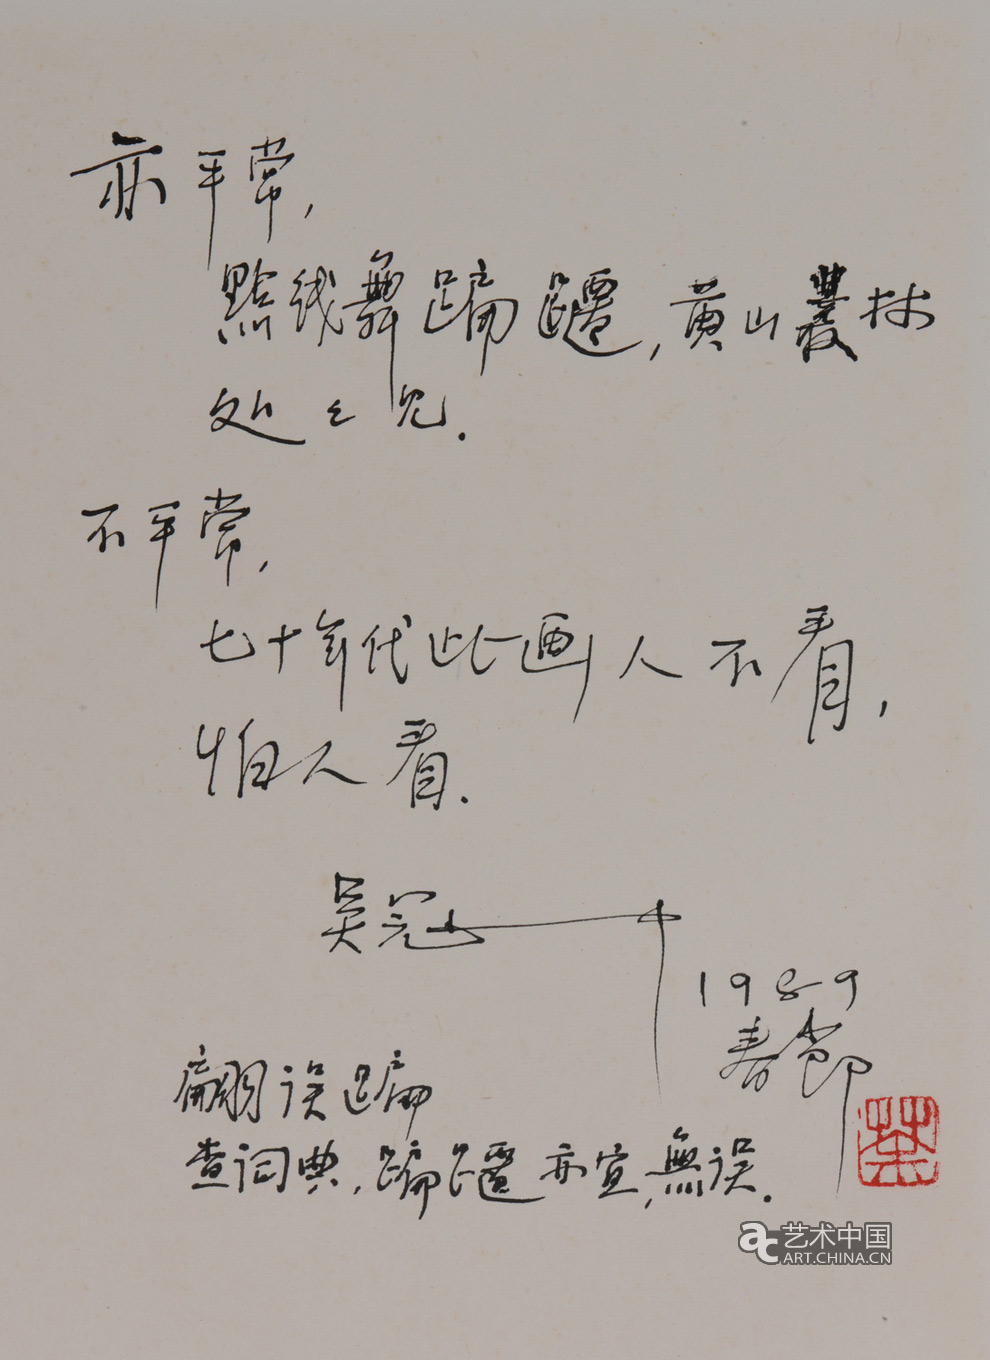 亦平常,
點线舞蹁躚,黄山叢林
处々见.
不平常,
七十年代此画人不看,
怕人看.
吴冠中
1989
春節
翩误蹁
查词典,蹁躚亦宜,無误.
荼
ac 艺术中国
ART.CHINA.CN